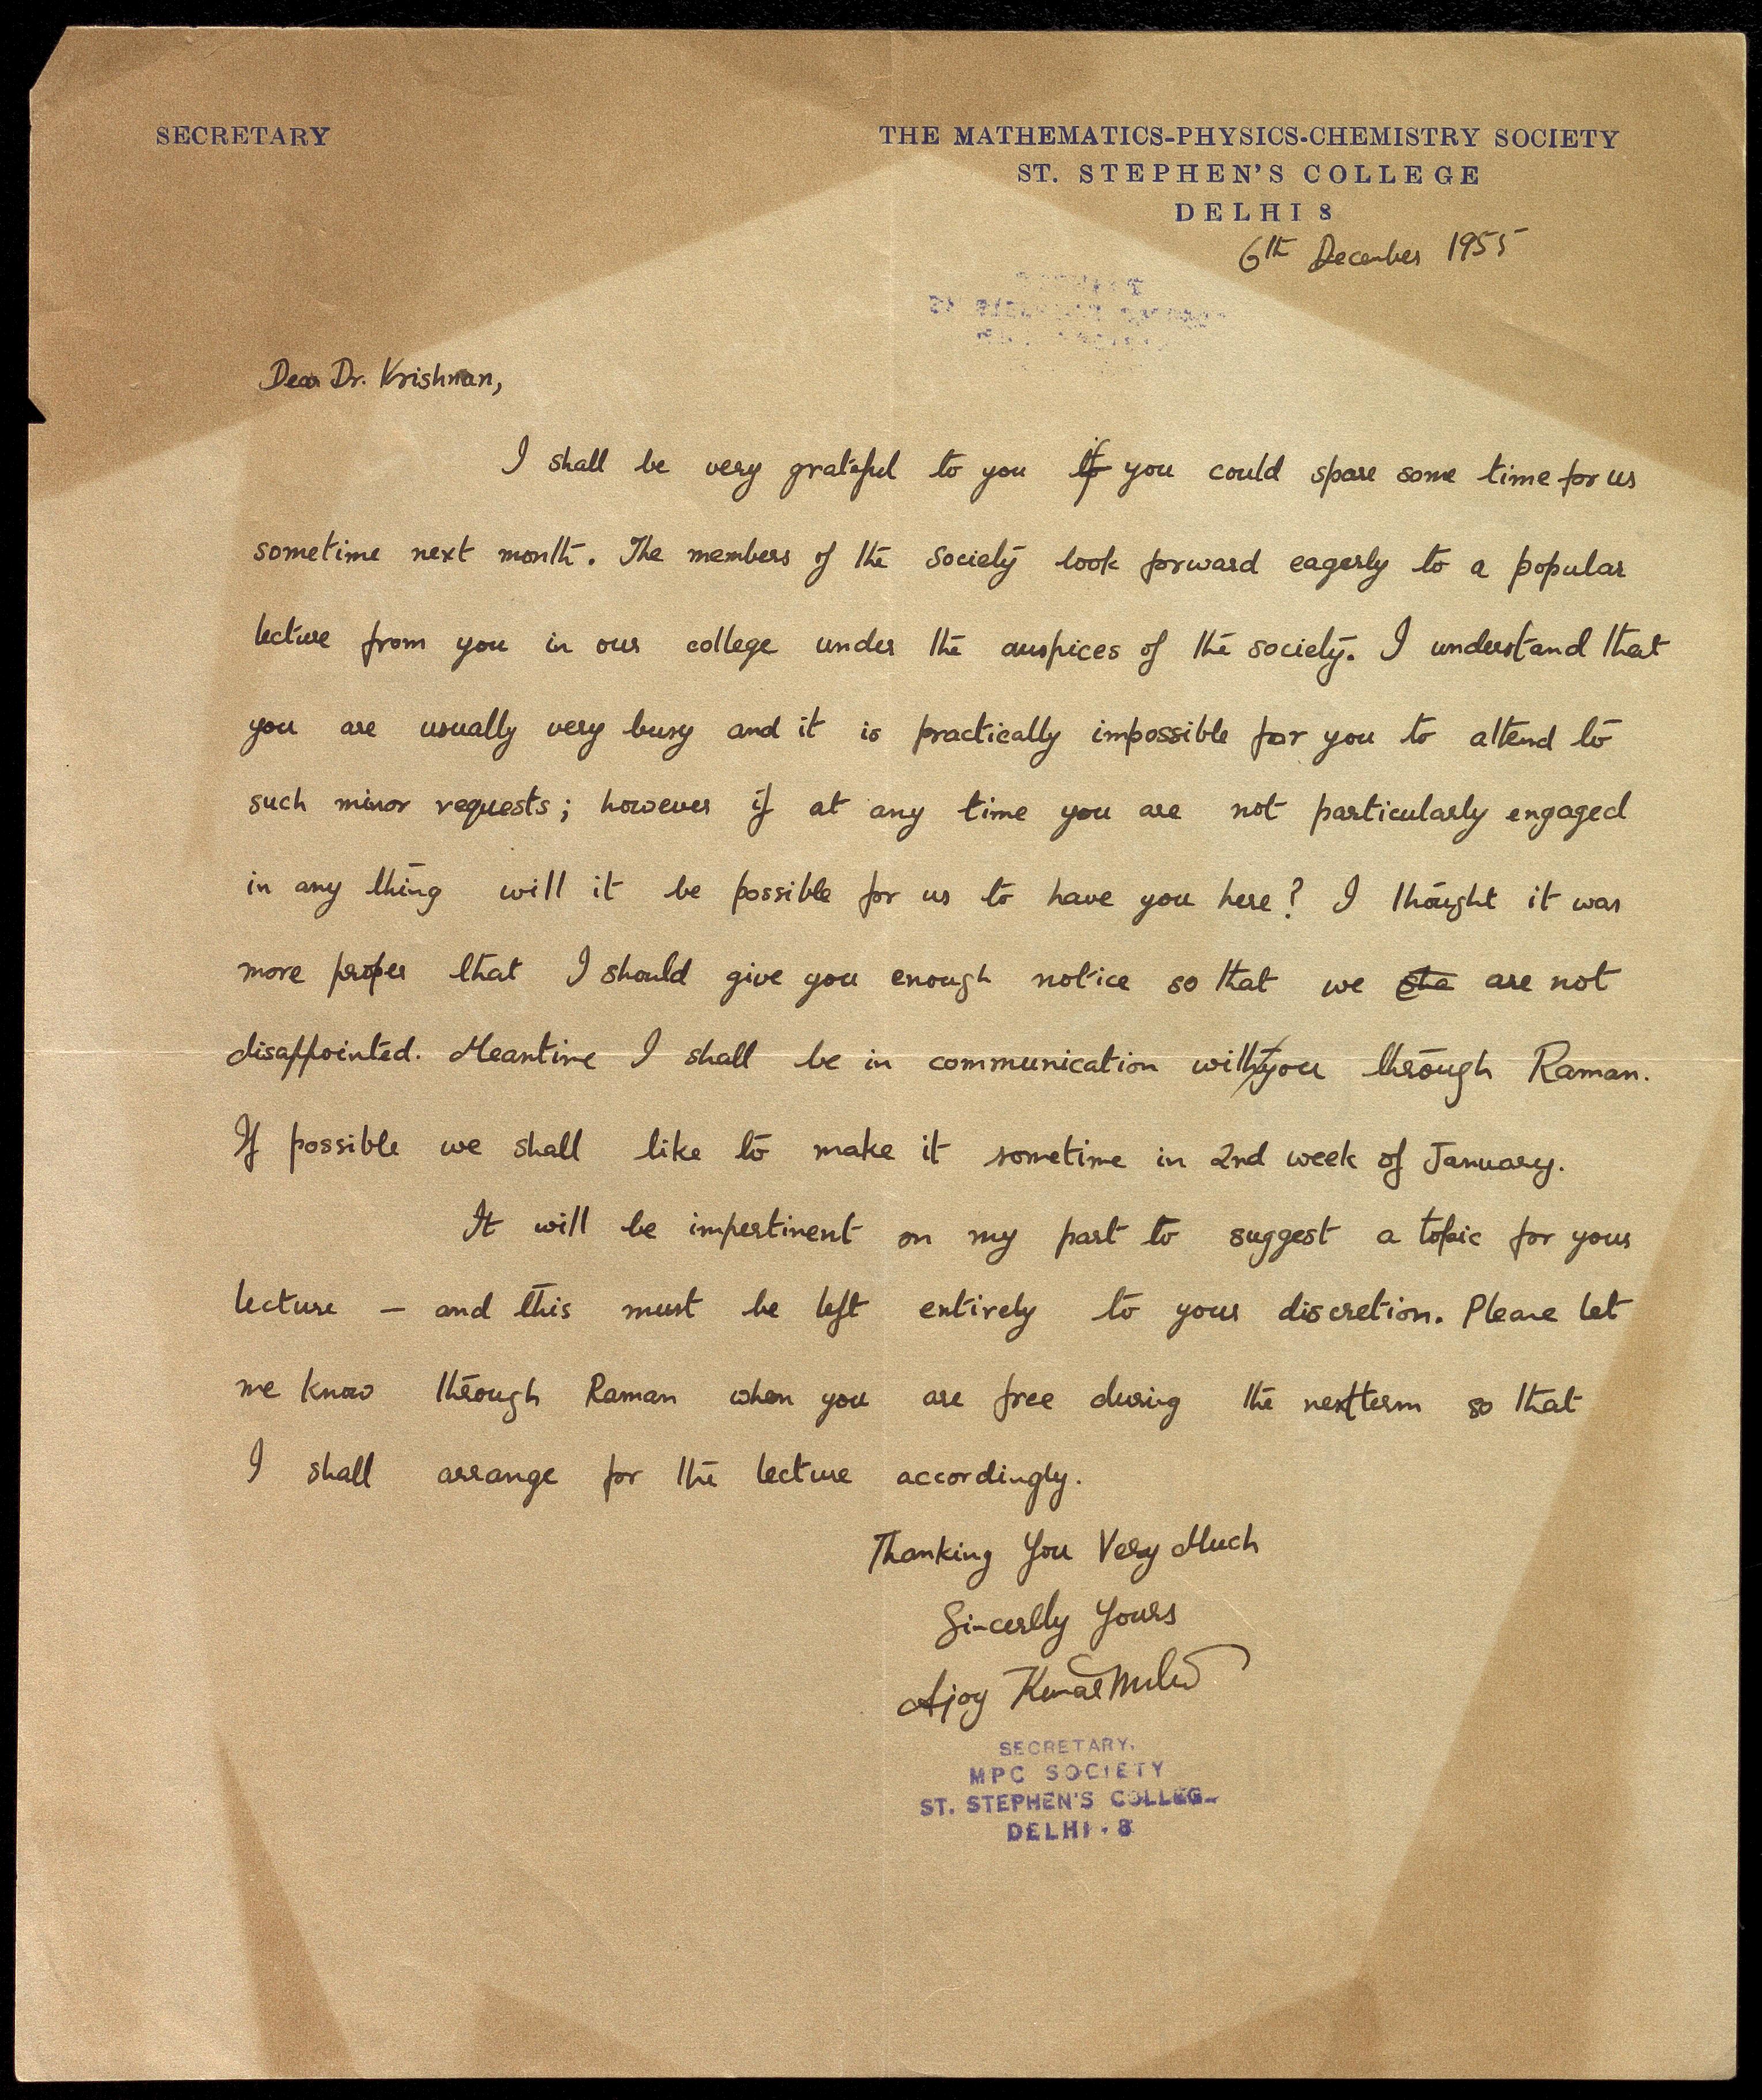 SECRETARY
THE MATHEMATICS-PHYSICS-CHEMISTRY SOCIETY
ST. STEPHEN'S COLLEGE
DELHI 8
6th December 1955
Dear Dr. Krishnan,
I shall be very grateful to you if you could spare some time for us
sometime next month. The members of the society look forward eagerly to a popular
lecture from you in our college under the auspices of the society. I understand that
you are usually very busy and it is practically impossible for you to attend to
such minor requests; however if at any time you are not particularly engaged
in any thing will it be possible for us to have you here? I thought it was
more proper that I should give you enough notice so that we are not
disappointed. Meantime I shall be in communication with you through Raman.
If possible we shall like to make it sometime in 2nd week of January.
It will be impertinent on my part to suggest a topic for your
lecture – and this must be left entirely to your discretion. Please let
me know through Raman when you are free during the next term so that
I shall arrange for the lecture accordingly.
Thanking You Very Much
Sincerlly Yours
Ajoy Kumar
SECRETARY.
MPC SOCIETY
ST. STEPHEN'S COLLEG
DELHI - 8